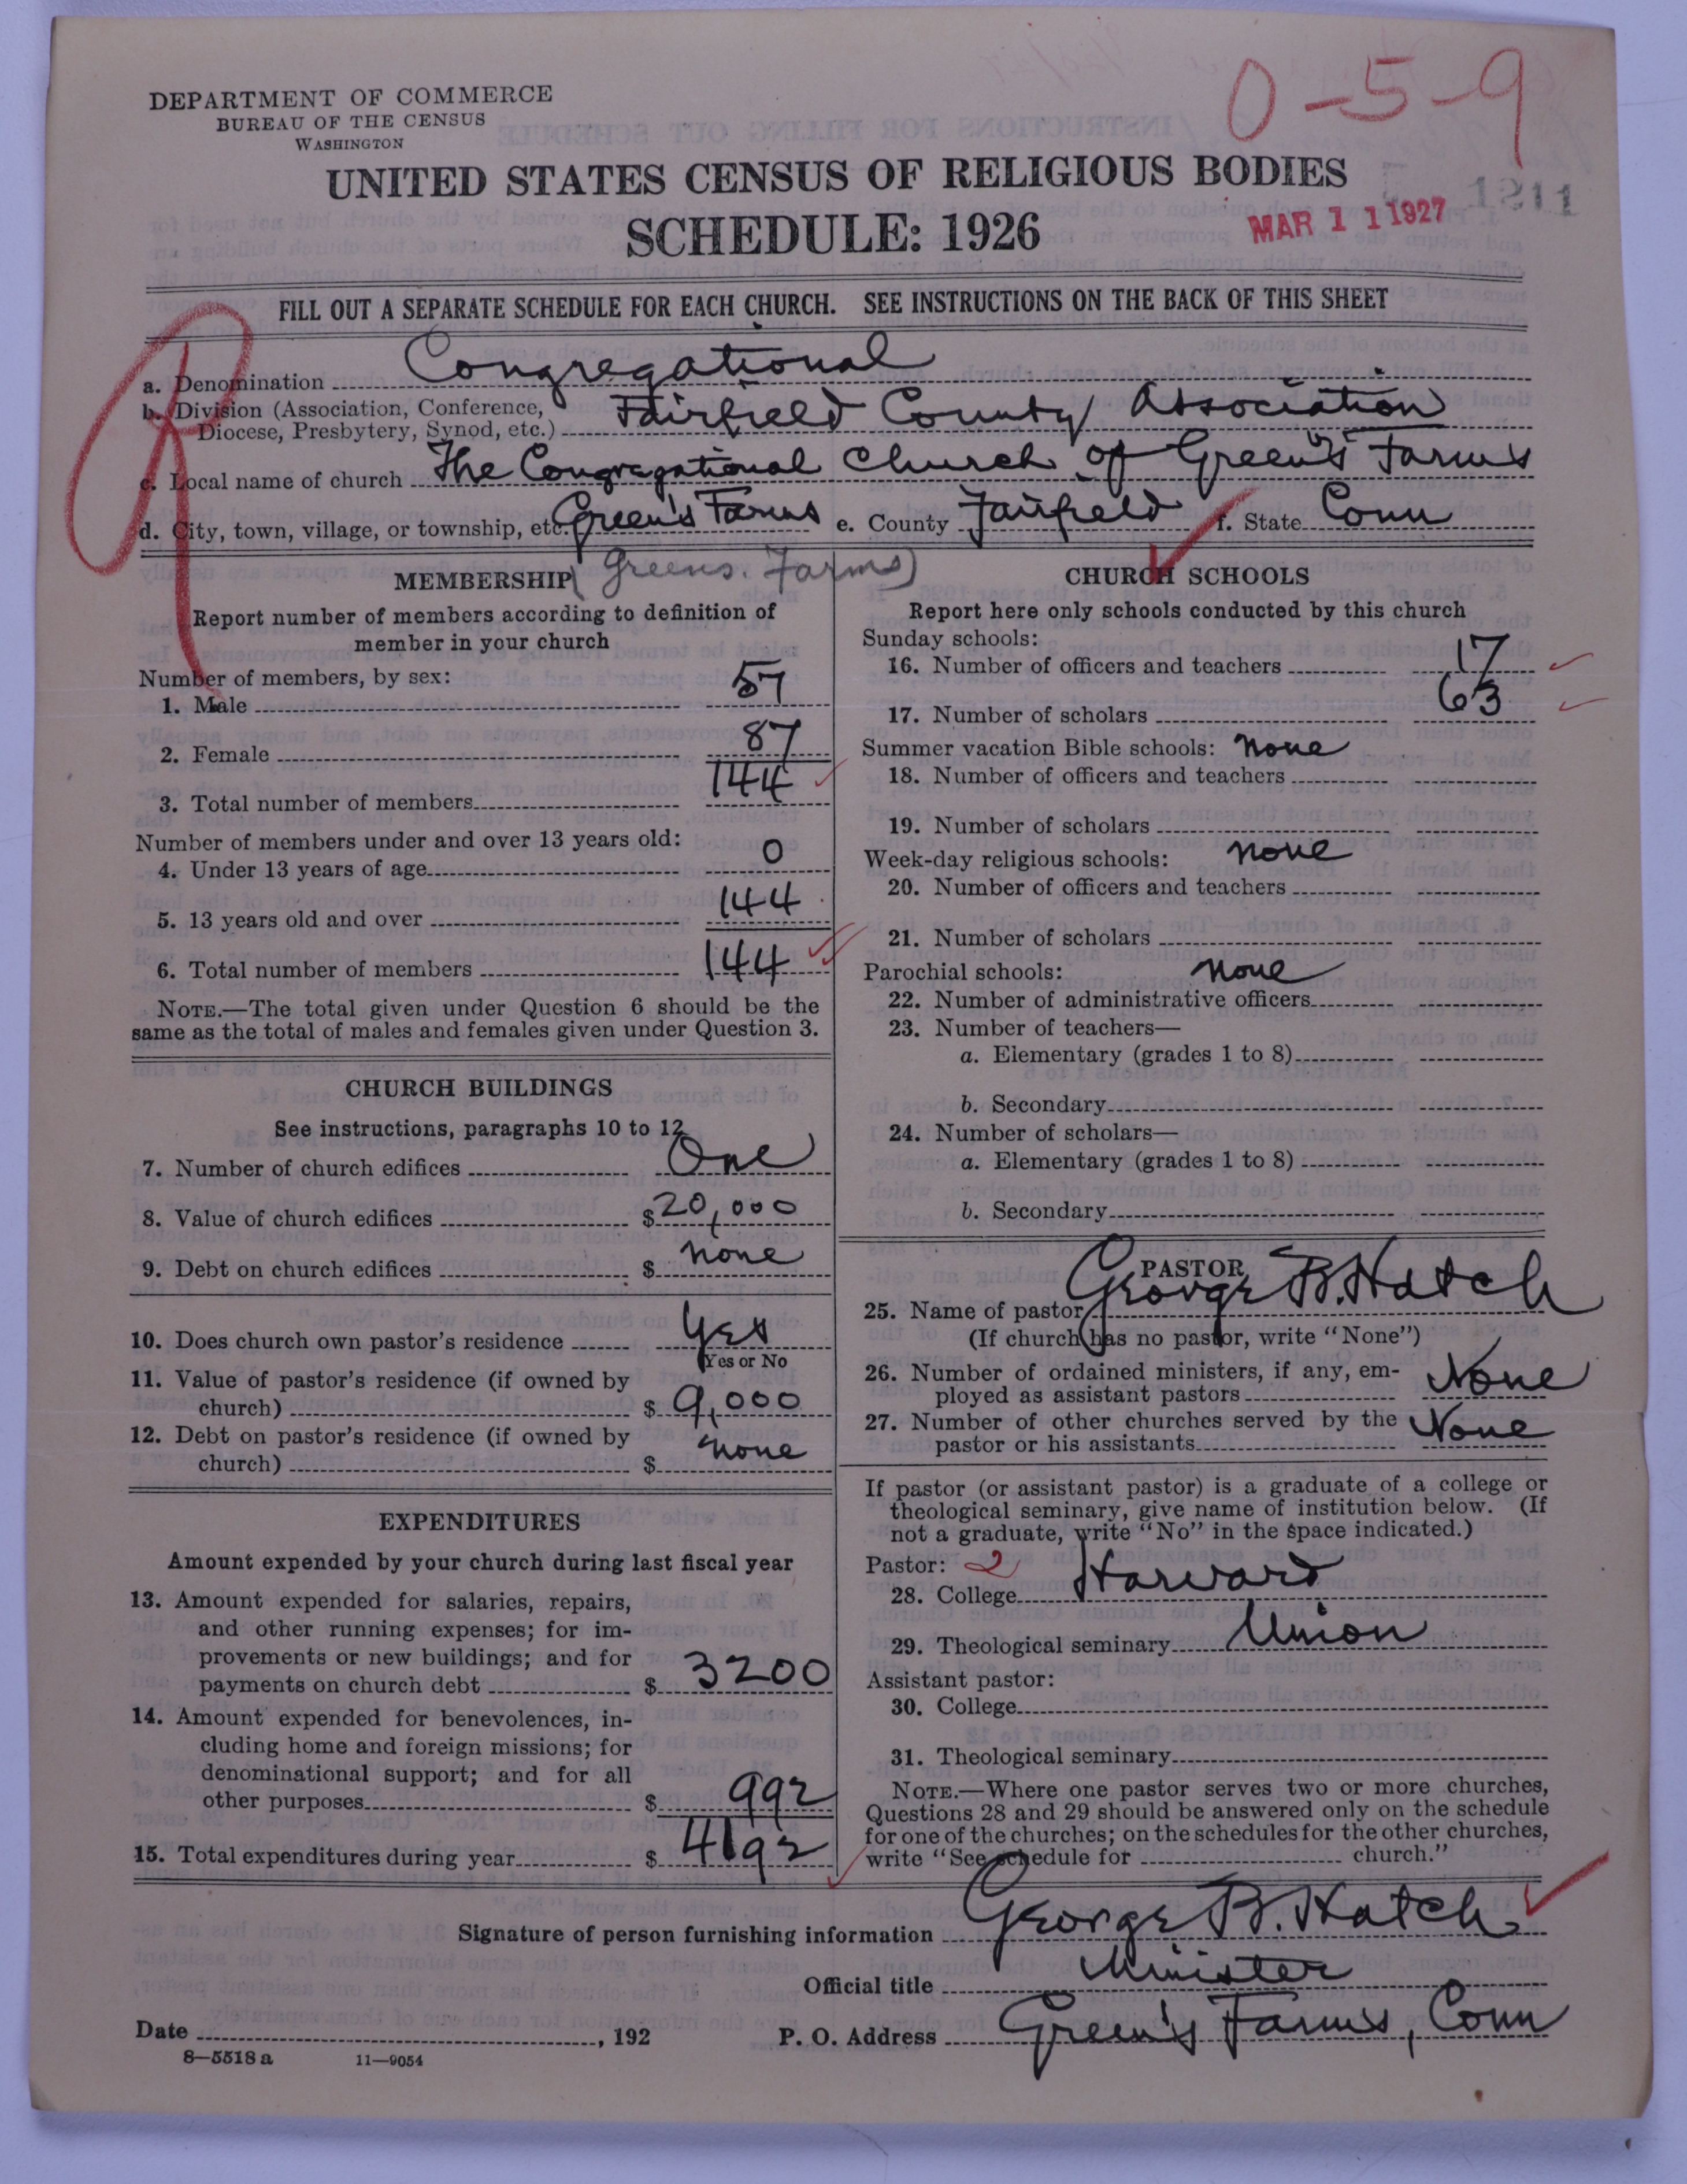 DEPARTMENT OF COMMERCE
BUREAU OF THE CENSUS
WASHINGTON
0-5-9
UNITED STATES CENSUS OF RELIGIOUS BODIES
SCHEDULE: 1926
MAR 11 1927
1211
FILL OUT A SEPARATE SCHEDULE FOR EACH CHURCH. SEE INSTRUCTIONS ON THE BACK OF THIS SHEET
a. Denomination Congregational
b. Division (Association, Conference, Diocese, Presbytery, Synod, etc.) Fairfield County Association
c. Local name of church The Congregational Church of Green's Farms
d. City, town, village, or township, etc. Green's Farms e. County Fairfield f. State Conn
(Greens. Farms)
MEMBERSHIP
Report number of members according to definition of
member in your church
Number of members, by sex:
1. Male 57
2. Female 87
3. Total number of members 144
Number of members under and over 13 years old:
4. Under 13 years of age 0
5. 13 years old and over 144
6. Total number of members 144
NOTE.—The total given under Question 6 should be the
same as the total of males and females given under Question 3.
CHURCH BUILDINGS
See instructions, paragraphs 10 to 12
7. Number of church edifices One
8. Value of church edifices $ 20,000
9. Debt on church edifices $ none
10. Does church own pastor's residence Yes
Yes or No
11. Value of pastor's residence (if owned by
church) $ 9,000
12. Debt on pastor's residence (if owned by
church) $ none
EXPENDITURES
Amount expended by your church during last fiscal year
13. Amount expended for salaries, repairs,
and other running expenses; for im-
provements or new buildings; and for
payments on church debt $ 3200
14. Amount expended for benevolences, in-
cluding home and foreign missions; for
denominational support; and for all
other purposes $ 992
15. Total expenditures during year $ 4192
CHURCH SCHOOLS
Report here only schools conducted by this church
Sunday schools:
16. Number of officers and teachers 17
17. Number of scholars 63
Summer vacation Bible schools: none
18. Number of officers and teachers
19. Number of scholars
Week-day religious schools: none
20. Number of officers and teachers
21. Number of scholars
Parochial schools: none
22. Number of administrative officers
23. Number of teachers—
a. Elementary (grades 1 to 8)
b. Secondary
24. Number of scholars—
a. Elementary (grades 1 to 8)
b. Secondary
PASTOR
25. Name of pastor George B. Hatch
(If church has no pastor, write "None")
26. Number of ordained ministers, if any, em-
ployed as assistant pastors None
27. Number of other churches served by the
pastor or his assistants None
If pastor (or assistant pastor) is a graduate of a college or
theological seminary, give name of institution below. (If
not a graduate, write "No" in the space indicated.)
Pastor: 2
28. College Harvard
29. Theological seminary Union
Assistant pastor:
30. College
31. Theological seminary
NOTE.—Where one pastor serves two or more churches,
Questions 28 and 29 should be answered only on the schedule
for one of the churches; on the schedules for the other churches,
write "See schedule for church."
Signature of person furnishing information George B. Hatch
Official title Minister
Date , 192 P. O. Address Green's Farms, Conn
8—5518 a 11—9054